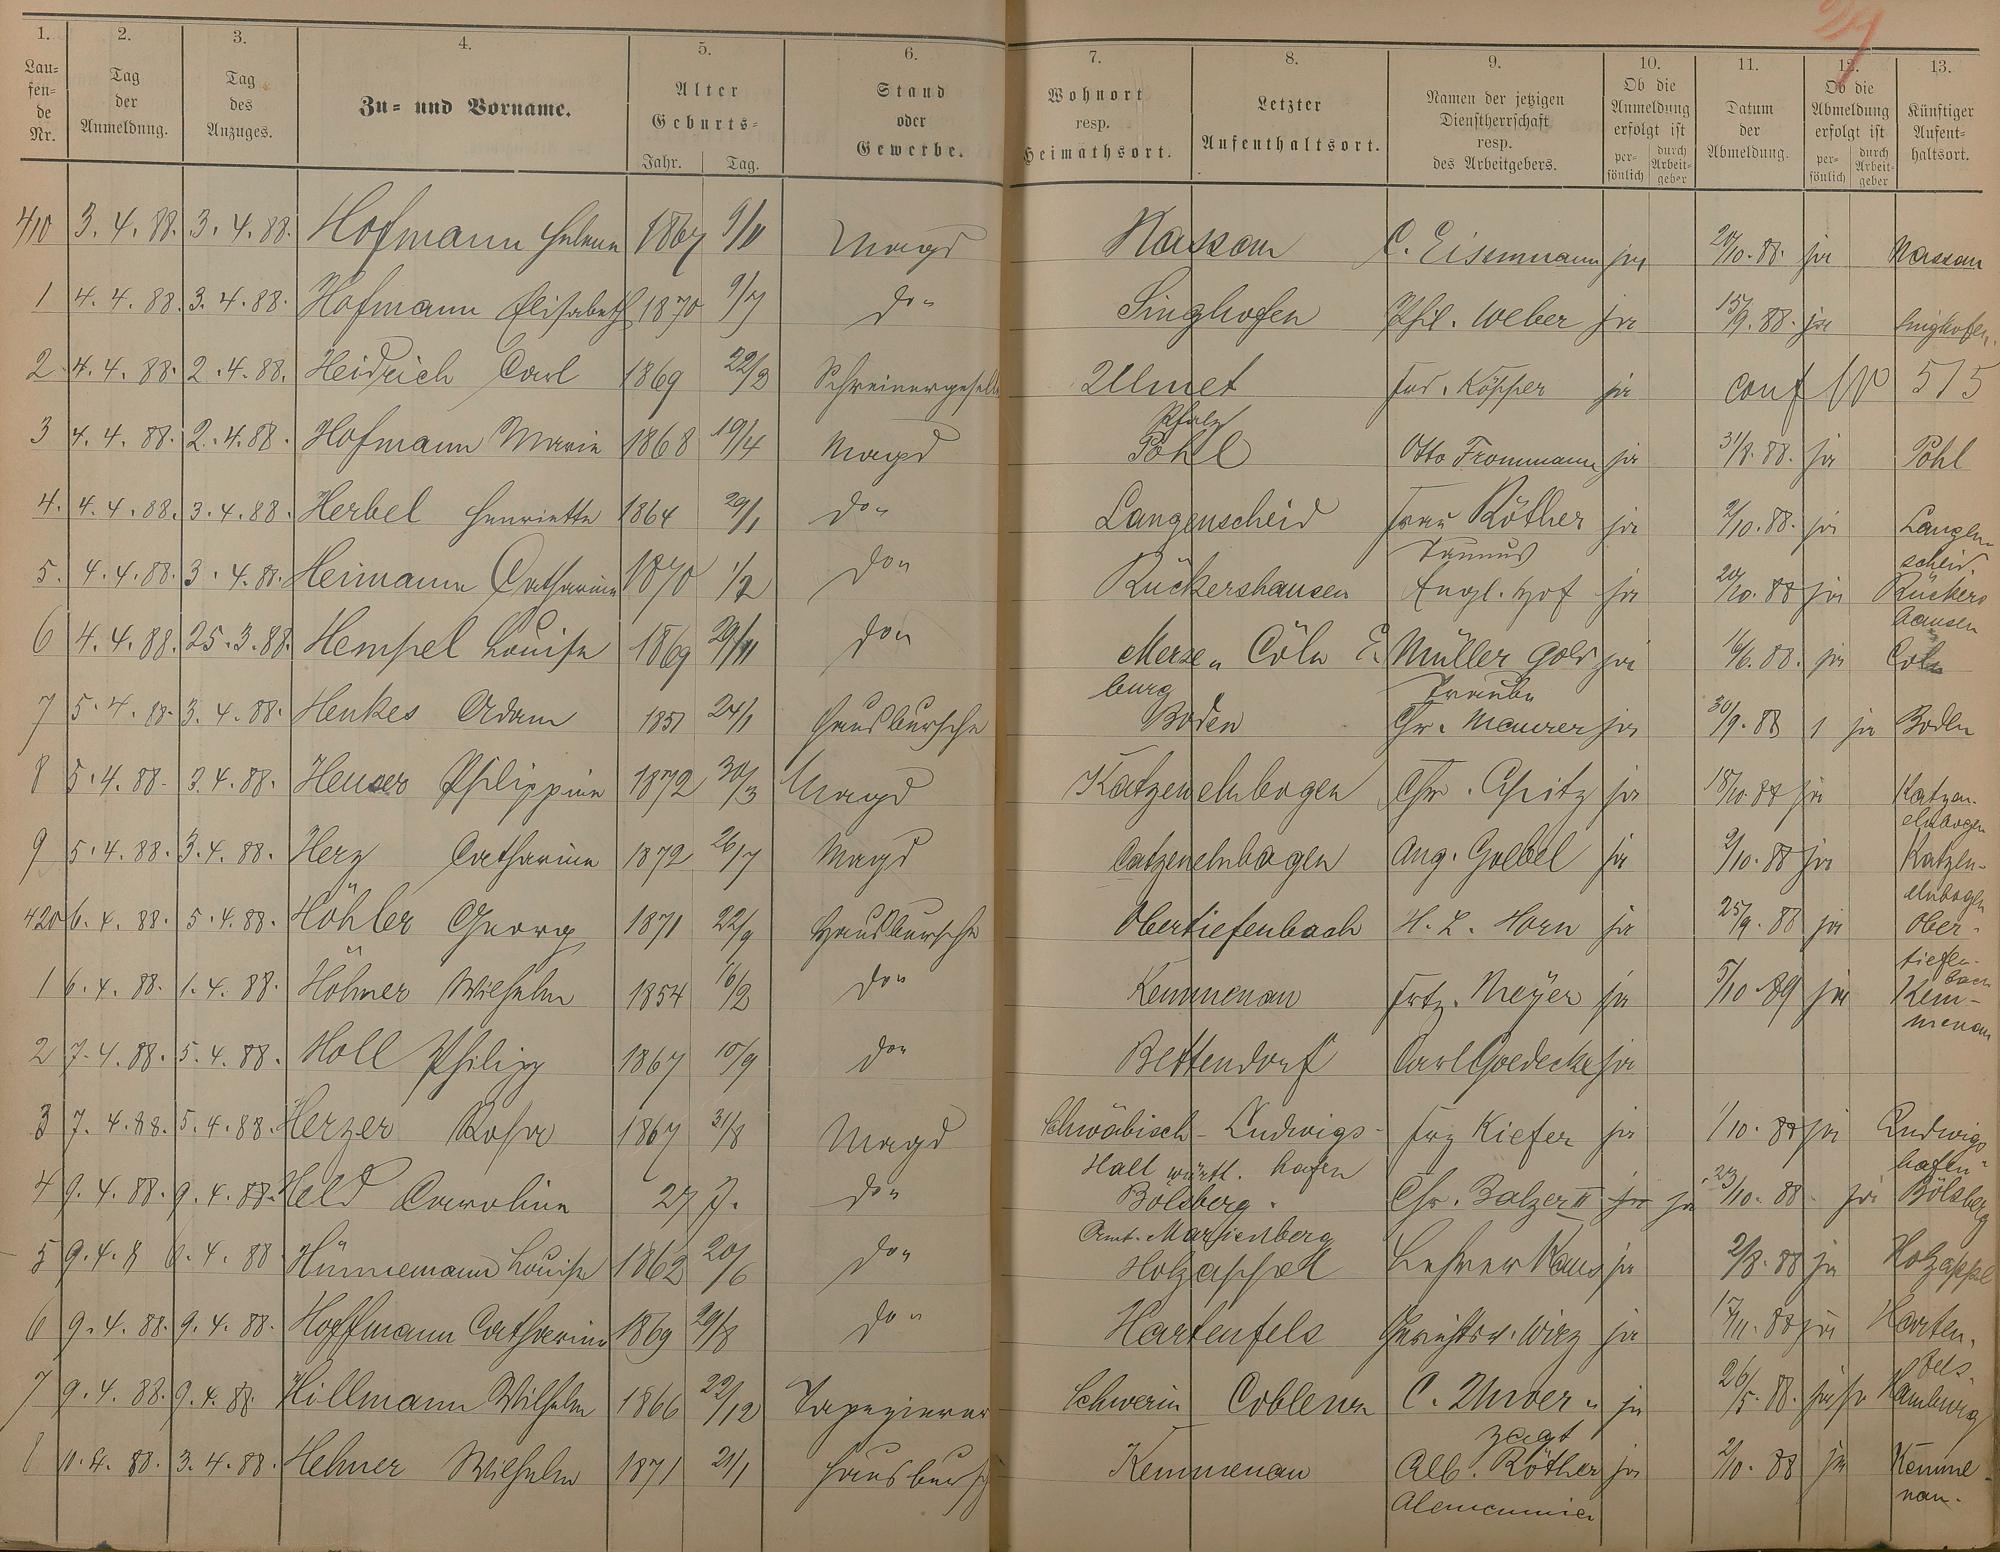 1. 2. 3. 4. 5. 6. 7. 8. 9. 10. 11. 12. 13.
Lau=fen=de Nr. Tag der Anmeldung. Tag des Anzuges. Zu= und Vorname. Alter Geburts= Jahr. Tag. Stand oder Gewerbe. Wohnort resp. Heimathsort. Letzter Aufenthaltsort. Namen der jetzigen Dienstherrschaft resp. des Arbeitgebers. Ob die Anmeldung erfolgt ist per=sönlich durch Arbeit=geber Datum der Abmeldung. Ob die Abmeldung erfolgt ist per=sönlich durch Arbeit=geber Künftiger Aufent=haltsort.
410 3. 4. 88. 3. 4. 88. Hofmann Helene 1867 9/11 Magd Nassau C. Eisenmann ja 20/10. 88. ja Nassau
1 4. 4. 88. 3. 4. 88. Hofmann Elisabeth 1870 9/7 do" Singhofen Phil. Weber ja 15/9. 88. ja Singhofen
2 4. 4. 88. 2. 4. 88. Heidrich Carl 1869 22/3 Schreinergeselle Ulmet Pfalz Köpper ja conf 515
3 4. 4. 88. 2. 4. 88. Hofmann Marie 1868 19/4 Magd Pohl Otto Frommann ja 31/8. 88. ja Pohl
4. 4. 4. 88. 3. 4. 88. Herbel Henriette 1864 29/1 do" Langenscheid Frau Röther Taunus ja 2/10. 88. ja Langenscheid.
5. 4. 4. 88. 3. 4. 88. Heimann Catharine 1870 1/2 do" Rückershausen Engl. Hof ja 20/10. 88 ja Rückershausen
6 4. 4. 88. 25. 3. 88. Hempel Louise 1869 29/11 do" Merseburg Cöln E. Müller Gold Traube ja 16/6. 88. ja Cöln
7 5. 4. 88. 3. 4. 88. Henkes Adam 1851 24/1 Hausbursche Boden Chr. Maurer ja 30/9. 88 1 ja Boden
8 5. 4. 88. 3. 4. 88. Heuser Philippine 1872 30/3 Magd Katzenelnbogen Chr. Spitz ja 18/10. 88 ja Katzenelnbogen
9 5. 4. 88. 3. 4. 88. Herz Catharine 1872 26/7 Magd Catzenelnbogen Aug. Goebel ja 9/10. 88 ja Katzenelnbogen
420 6. 4. 88. 5. 4. 88. Höhler Georg 1871 22/9 Hausbursche Obertiefenbach H. L. Horn ja 25/9. 88 ja Ober-tiefen-bach
1 6. 4. 88. 1. 4. 88. Höhner Wilhelm 1854 16/2 do" Kemmenau Meyer ja 5/10. 89 ja Kem-menau
2 7. 4. 88. 5. 4. 88. Holl Philipp 1867 10/9 do" Bettendorf Carl Goedecke ja
3 7. 4. 88. 5. 4. 88. Herzer Rosa 1867 31/8 Magd Schwäbisch-Hall württ. Ludwigs-hafen Kiefer ja 1/10. 88 ja Ludwigshafen
4 9. 4. 88. 9. 4. 88. Held Caroline 27 J. do" Bölsberg Amt. Marienberg Chr. Balzer II ja 23/10. 88. ja Bölsberg
5 9. 4. 8 8. 4. 88 Hünnemann Louise 1862 20/6 do" Holzappel Lehrer Kaus ja 2/8. 88 ja Holzappel
6 9. 4. 88. 9. 4. 88. Hoffmann Catharine 1869 29/8 do" Hartenfels Wirz ja 17/11. 88 ja Harten-fels.
7 9. 4. 88. 9. 4. 88 Hillmann Wilhelm 1866 22/12 Tapezierer Schwerin Coblenz C. Unverzagt ja 26/5. 88. ja ja Hamburg
8 11. 4. 88. 3. 4. 88. Hehner Wilhelm 1871 21/1 Hausbursche Kemmenau Alb. Röther ja 2/10. 88 ja Kemme-nau.